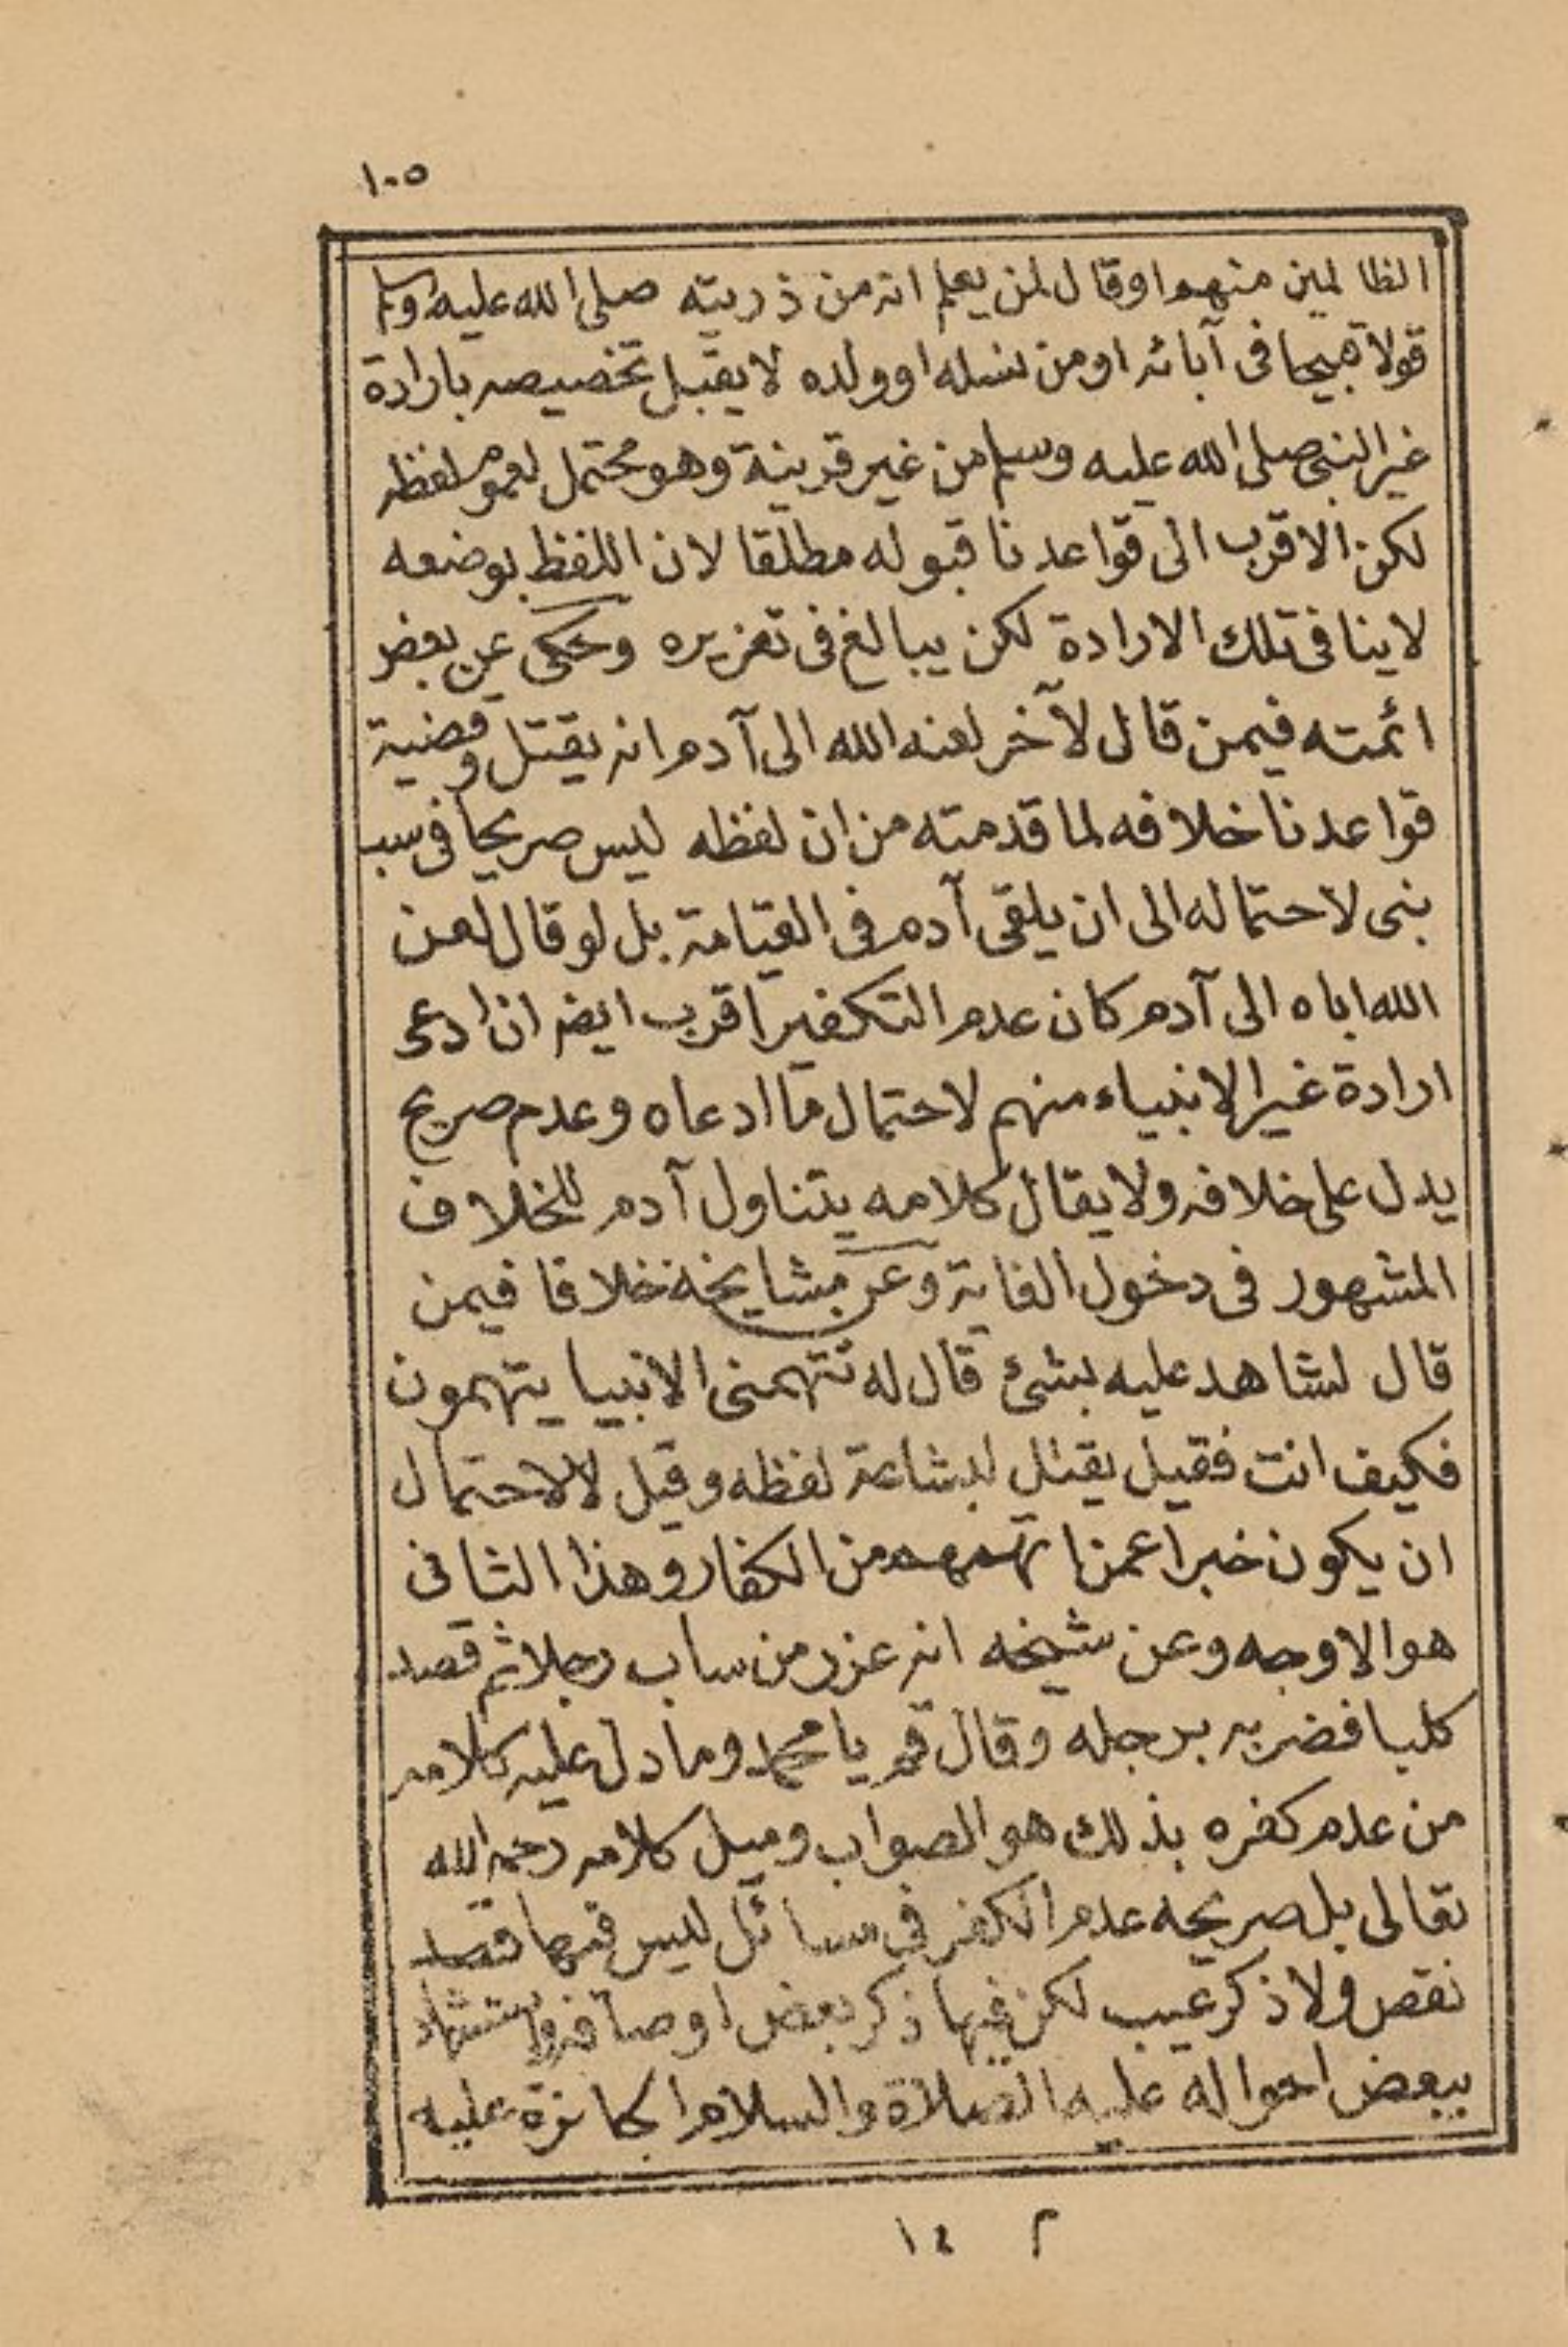 ١٠٥
الظالمين منهم او قال لمن يعلم انه من ذريته صلى الله عليه وسلم
قولا قبيحا فى آبائه او من نسله او ولده لا يقبل تخصيصه بارادة
غير النبى صلى الله عليه وسلم من غير قرينة وهو محتمل لعموم لفظه
لكن الاقرب الى قواعدنا قبوله مطلقا لان اللفظ بوضعه
لا ينافى تلك الارادة لكن يبالغ فى تعزيره وحكى عن بعض
ائمته فيمن قال لآخر لعنه الله الى آدم انه يقتل وقضية
قواعدنا خلافه لما قدمته من ان لفظه ليس صريحا فى سب
نبى لاحتماله الى ان يلقى آدم فى القيامة بل لو قال لعن
الله اباه الى آدم كان عدم التكفير اقرب ايضا ان ادعى
ارادة غير الانبياء منهم لاحتمال ما ادعاه وعدم صريح
يدل على خلافه ولا يقال كلامه يتناول آدم للخلاف
المشهور فى دخول الغاية وعن مشايخه خلافا فيمن
قال لشاهد عليه بشئ قال له تتهمنى الانبيا يتهمون
فكيف انت فقيل يقتل لبشاعة لفظه وقيل لا لاحتمال
ان يكون خبرا عمن اتهمهم من الكفار وهذا الثانى
هو الاوجه وعن شيخه انه عزر من ساب رجلا ثم قصد
كلبا فضربه برجله وقال قم يا محمد وما دل عليه كلامه
من عدم كفره بذلك هو الصواب وميل كلامه رحمه الله
تعالى بل صريحه عدم الكفر في مسائل ليس فيها قصد
نقص ولا ذكر عيب لكن فيها ذكر بعض اوصافه واستشهاد
ببعض احواله عليه الصلاة والسلام الجائزة عليه
١٤ م